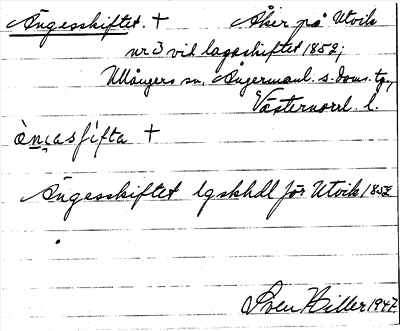 Ängesskiftet. + Åker på Utvik
nr 3 vid lagaskiftet 1852;
Ullångers sn, Ångermanl. s. doms. tg.,
Västernorrl. l.
ä̀n̨ɩasfı̀fta +
Ängesskiftet lgskhdl för Utvik 1852
Sven Biller 1947.